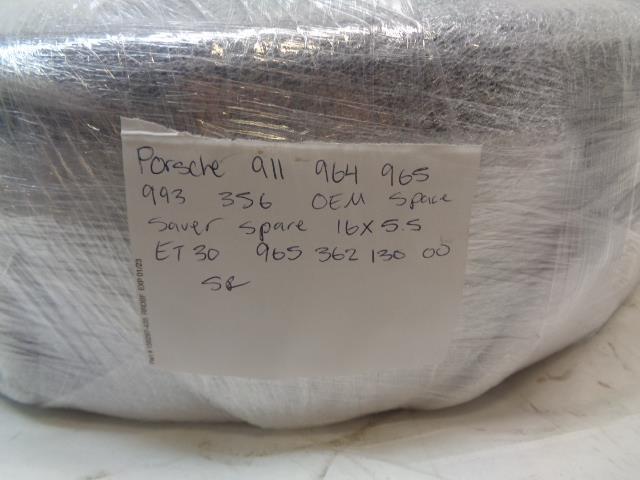 Porsche 911 964 965
993 356 OEM Space
Saver Spare 16x5.5
ET30 965 362 130 00
EXP 01/23